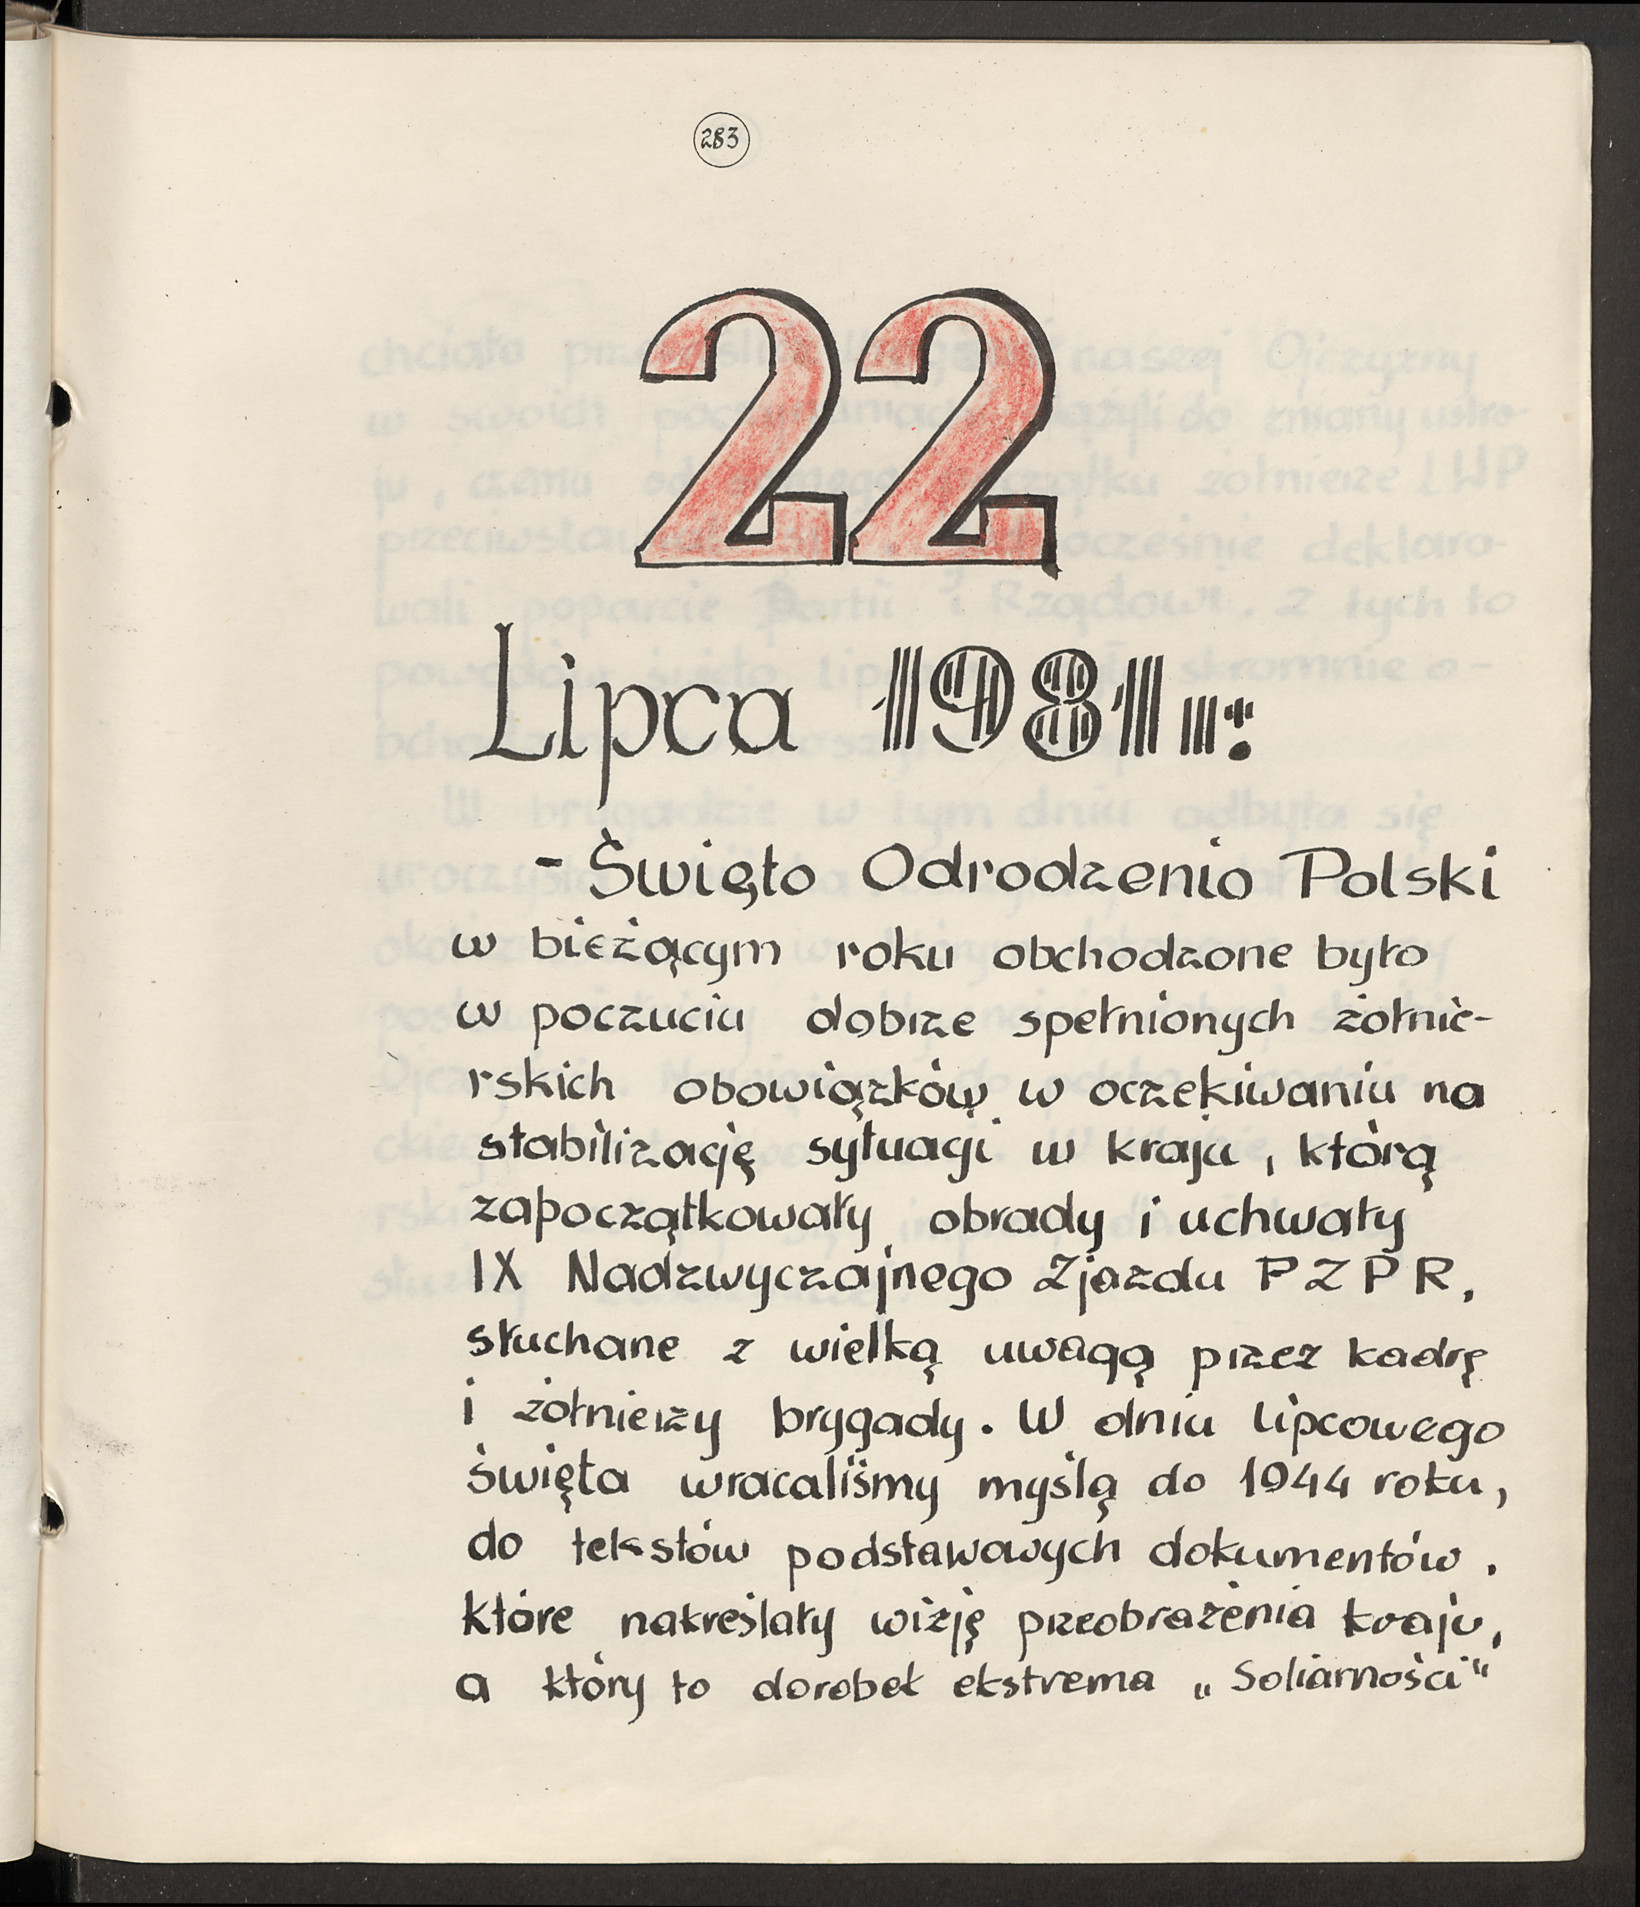 283
22
Lipca 1981 r.:
- Święto Odrodzenia Polski
w bieżącym roku obchodzone było
w poczuciu dobrze spełnionych żołnie-
rskich obowiązków w oczekiwaniu na
stabilizację sytuacji w kraju, którą
zapoczątkowały obrady i uchwały
IX Nadzwyczajnego Zjazdu PZPR,
słuchane z wielką uwagą przez kadrę
i żołnierzy brygady. W dniu lipcowego
święta wracaliśmy myślą do 1944 roku,
do tekstów podstawowych dokumentów,
które nakreślały wizję przeobrażenia kraju,
a który to dorobek ekstrema „Soliarności“